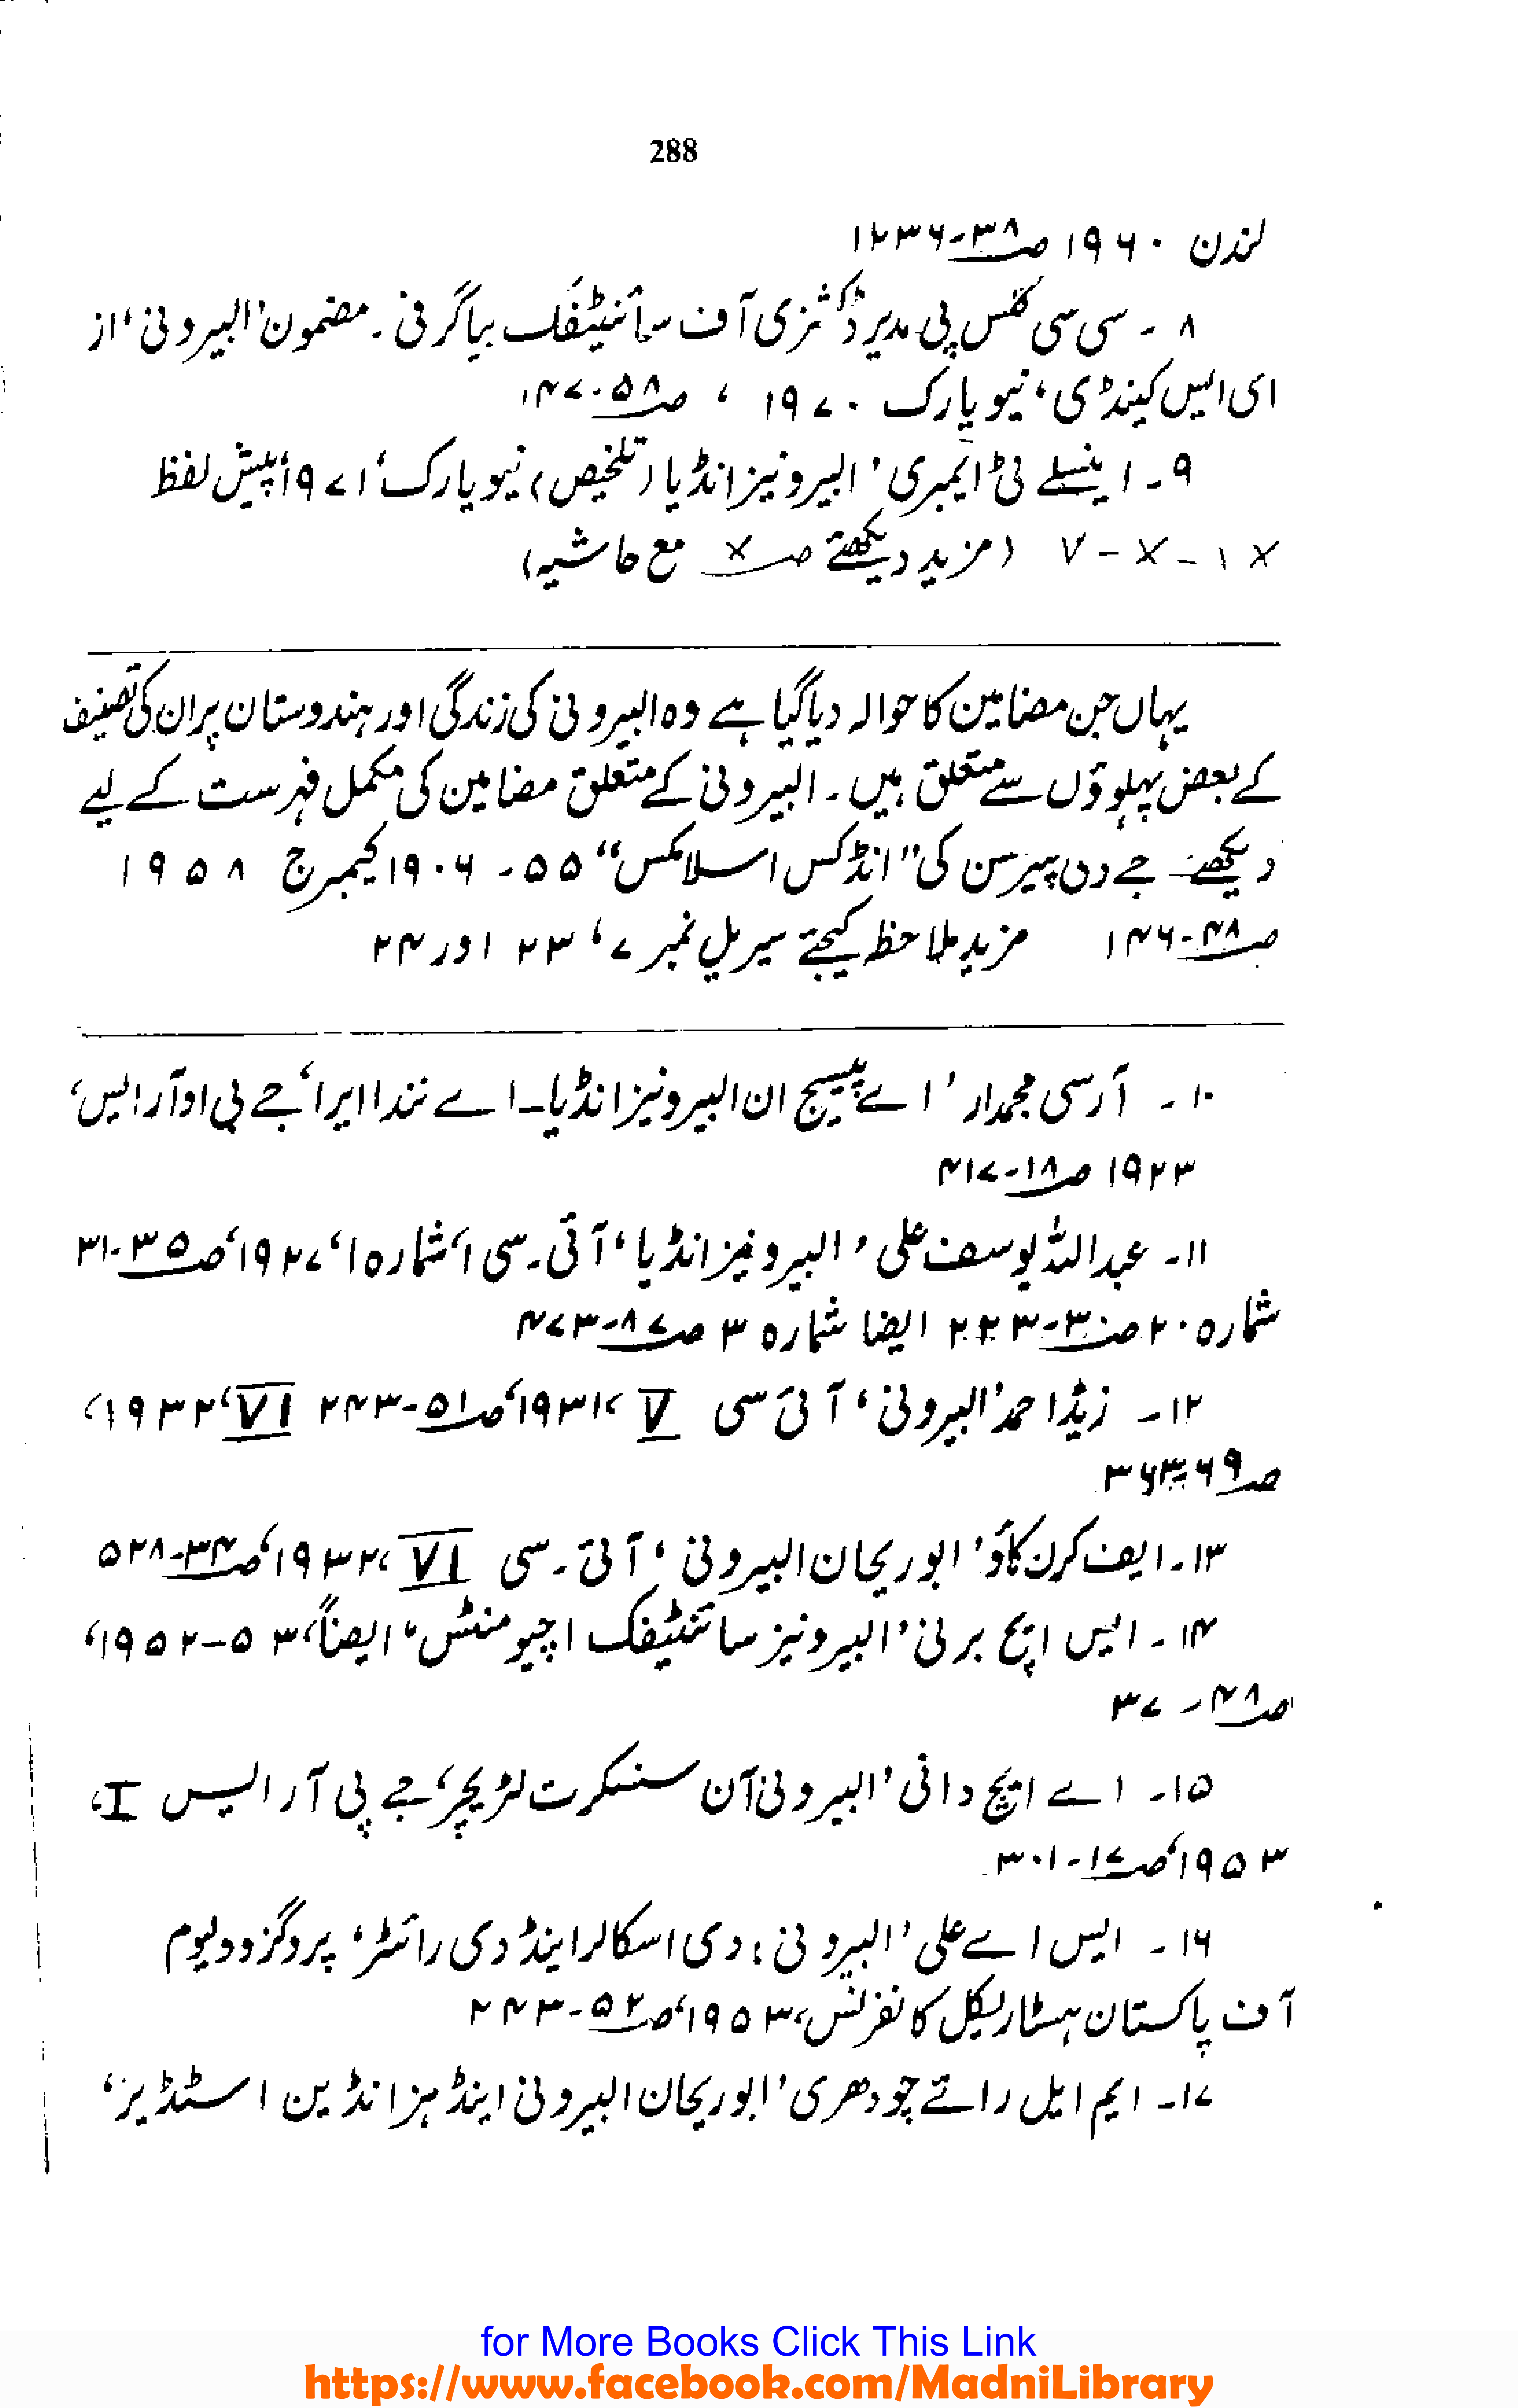 288
لندن ۱۹۶۰ صـ ۳۸-۱۲۳۶
۸ - سی سی گلس پی مدیر ڈکشنری آف سائنٹیفک بیاگرفی۔ مضمون 'البیرونی' از
ای ایس کینڈی، نیویارک ۱۹۷۰ ، صـ ۵۸-۱۴۷
۹ - اینسلے ٹی ایمبری 'البیرونیز انڈیا (تلخیص) نیویارک، ۱۹۷۱ پیش لفظ
V - X - ۱ X (مزید دیکھئے صـ X مع حاشیہ)
یہاں جن مضامین کا حوالہ دیا گیا ہے وہ البیرونی کی زندگی اور ہندوستان پر ان کی تصنیف
کے بعض پہلوؤں سے متعلق ہیں۔ البیرونی کے متعلق مضامین کی مکمل فہرست کے لیے
دیکھئے جے دی پیرسن کی "انڈکس اسلامکس" ۵۵ - ۱۹۰۶ کیمبرج ۱۹۵۸
صـ ۴۸-۱۴۶ مزید ملاحظہ کیجئے سیریل نمبر ۷، ۲۳ اور ۲۴
۱۰ - آر سی مجمدار 'اے پیسیج ان البیرونیز انڈیا-اے نندا ایرا، جے بی او آر ایس،
۱۹۲۳ صـ ۱۸-۴۱۷
۱۱ - عبداللہ یوسف علی 'البیرونیز انڈیا، آئی۔سی ۱، شمارہ ۱، ۱۹۲۷، صـ ۳۵-۳۱
شمارہ ۲۰ صـ ۳۰-۲۲۳ ایضا شمارہ ۳ صـ ۸۷-۴۷۳
۱۲ - زیڈ احمد 'البیرونی، آئی سی V، ۱۹۳۱، صـ ۵۱-۲۴۳ VI، ۱۹۳۲،
صـ ۶۹-۳۶۳
۱۳ - ایف کرن کاؤ 'ابو ریحان البیرونی، آئی۔سی VI، ۱۹۳۲، صـ ۳۴-۵۲۸
۱۴ - ایس ایچ برنی 'البیرونیز سائنٹیفک اچیومنٹس، ایضاً، ۵۳-۱۹۵۲،
صـ ۴۸ - ۳۷
۱۵ - اے ایچ دانی 'البیرونی آن سنسکرت لٹریچر، جے پی آر ایس I،
۱۹۵۳، صـ ۱۷-۳۰۱
۱۶ - ایس اے علی 'البیرونی : دی اسکالر اینڈ دی رائٹر، پروگز وولیوم
آف پاکستان ہسٹاریکل کانفرنس، ۱۹۵۳، صـ ۵۲-۲۴۳
۱۷ - ایم ایل رائے چودھری 'ابو ریحان البیرونی اینڈ ہز انڈین اسٹڈیز،
for More Books Click This Link
https://www.facebook.com/MadniLibrary